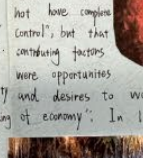 not have complete
control", but that
contributing factors
were opportunites
and desires to
of economy". In